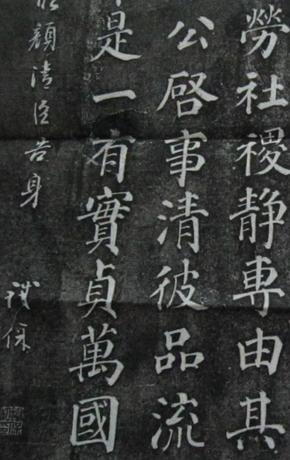 勞社稷静專由其
公啓事清彼品流
是一有實貞萬國
顏清臣告身
鐵保